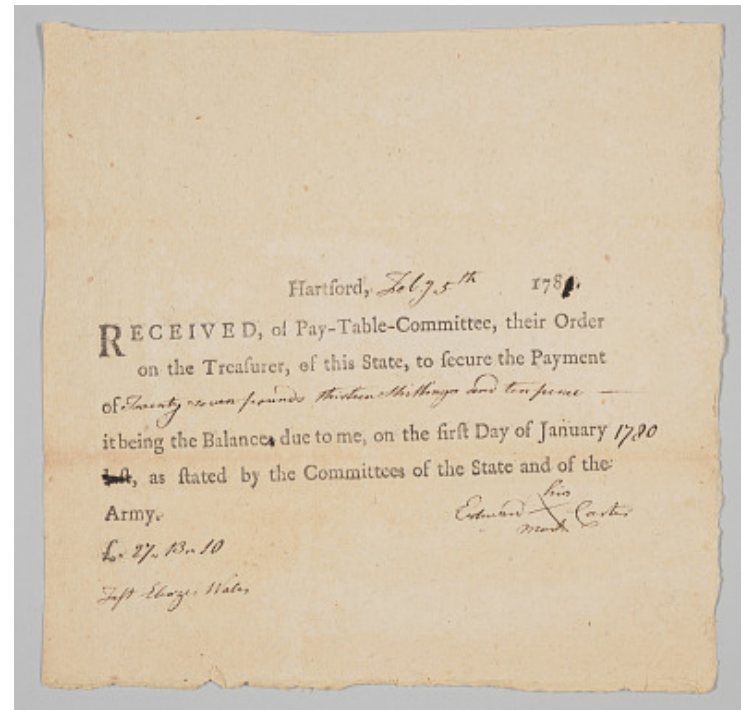 Hartford, Feby 5th 1781.
RECEIVED, of Pay-Table-Committee, their Order
on the Treaſurer, of this State, to ſecure the Payment
of Twenty seven pounds thirteen Shillings and ten pence —
it being the Balance, due to me, on the firſt Day of January 1780
laſt, as ſtated by the Committees of the State and of the
Army.
his
Edward X Carter
mark
£. 27,, 13,, 10
Teſt Ebenzr. Wales